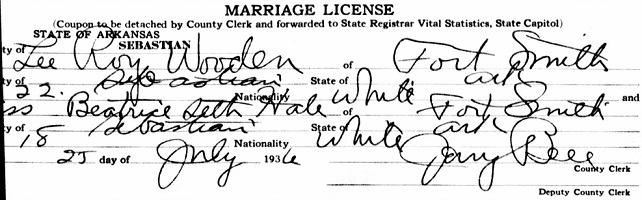 MARRIAGE LICENSE
(Coupon to be detached by County Clerk and forwarded to State Registrar Vital Statistics, State Capitol)
STATE OF ARKANSAS
SEBASTIAN
ty of Lee Roy Wooden of Fort Smith
ty of Sebastian State of Ark
22. Nationality White and
ss Beatrice Seth Hale of Fort Smith
ty of Sebastian State of Ark
18 Nationality White
25 day of July 1936
County Clerk
Deputy County Clerk